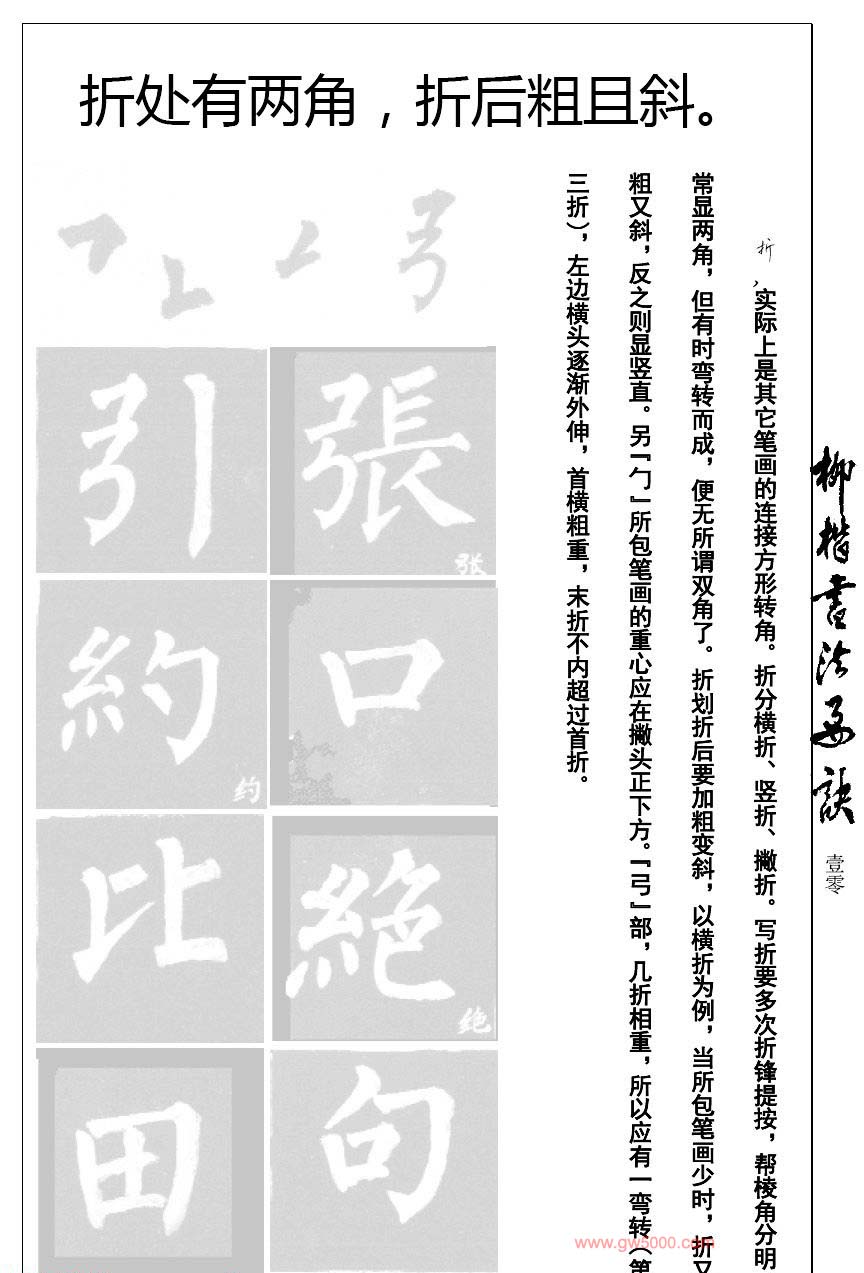 折处有两角，折后粗且斜。
折，实际上是其它笔画的连接方形转角。折分横折、竖折、撇折。写折要多次折锋提按，帮棱角分明
常显两角，但有时弯转而成，便无所谓双角了。折划折后要加粗变斜，以横折为例，当所包笔画少时，折又
粗又斜，反之则显竖直。另『勹』所包笔画的重心应在撇头正下方。『弓』部，几折相重，所以应有一弯转（第
三折），左边横头逐渐外伸，首横粗重，末折不内超过首折。
引
張
张
約
约
口
比
絶
绝
田
句
柳楷書法要訣
壹零
www.gw5000.com